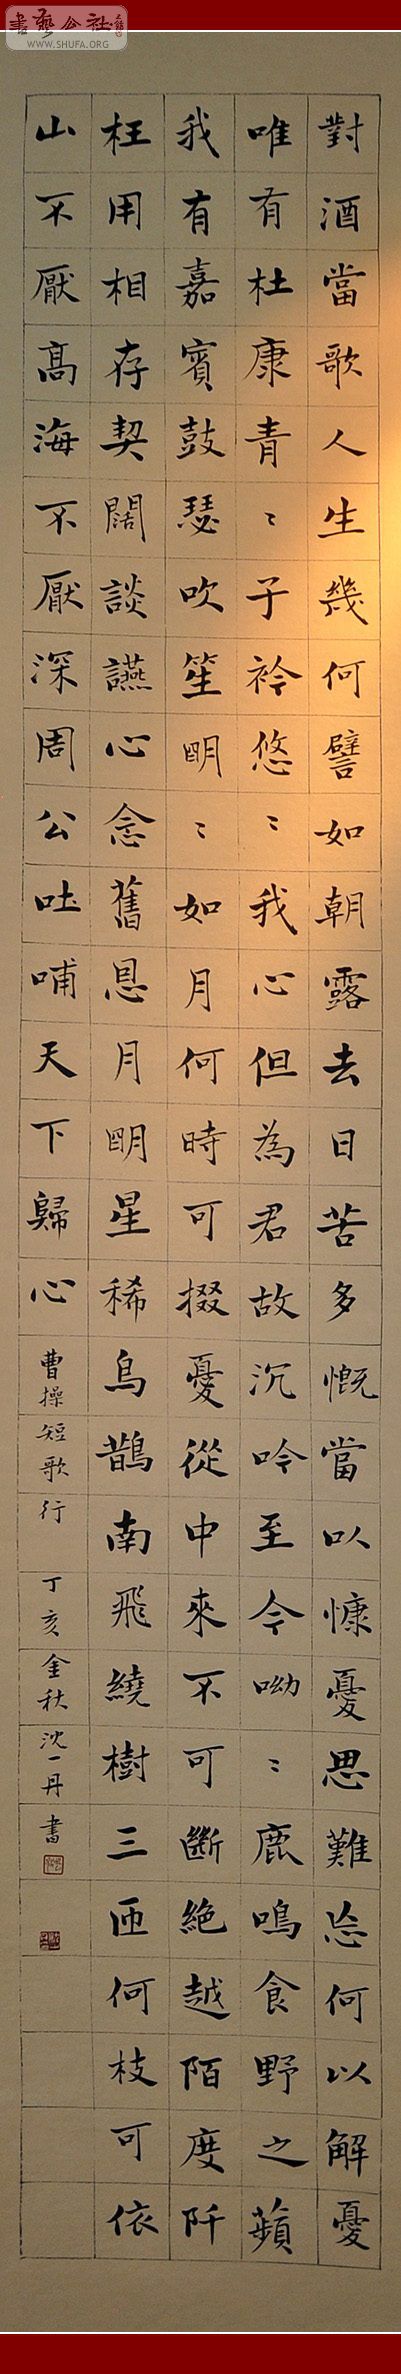 書藝公社
WWW.SHUFA.ORG
對酒當歌人生幾何譬如朝露去日苦多慨當以慷憂思難忘何以解憂
唯有杜康青〻子衿悠〻我心但為君故沉吟至今呦〻鹿鳴食野之蘋
我有嘉賓鼓瑟吹笙明〻如月何時可掇憂從中來不可斷絕越陌度阡
枉用相存契闊談讌心念舊恩月明星稀烏鵲南飛繞樹三匝何枝可依
山不厭高海不厭深周公吐哺天下歸心
曹操短歌行 丁亥金秋沈一丹書